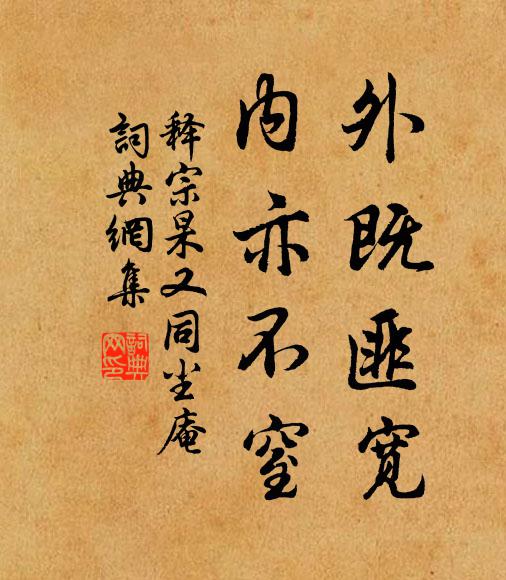 外既匪寬
内亦不窒
释宗杲又同尘庵
詞典網集
詞典
网印